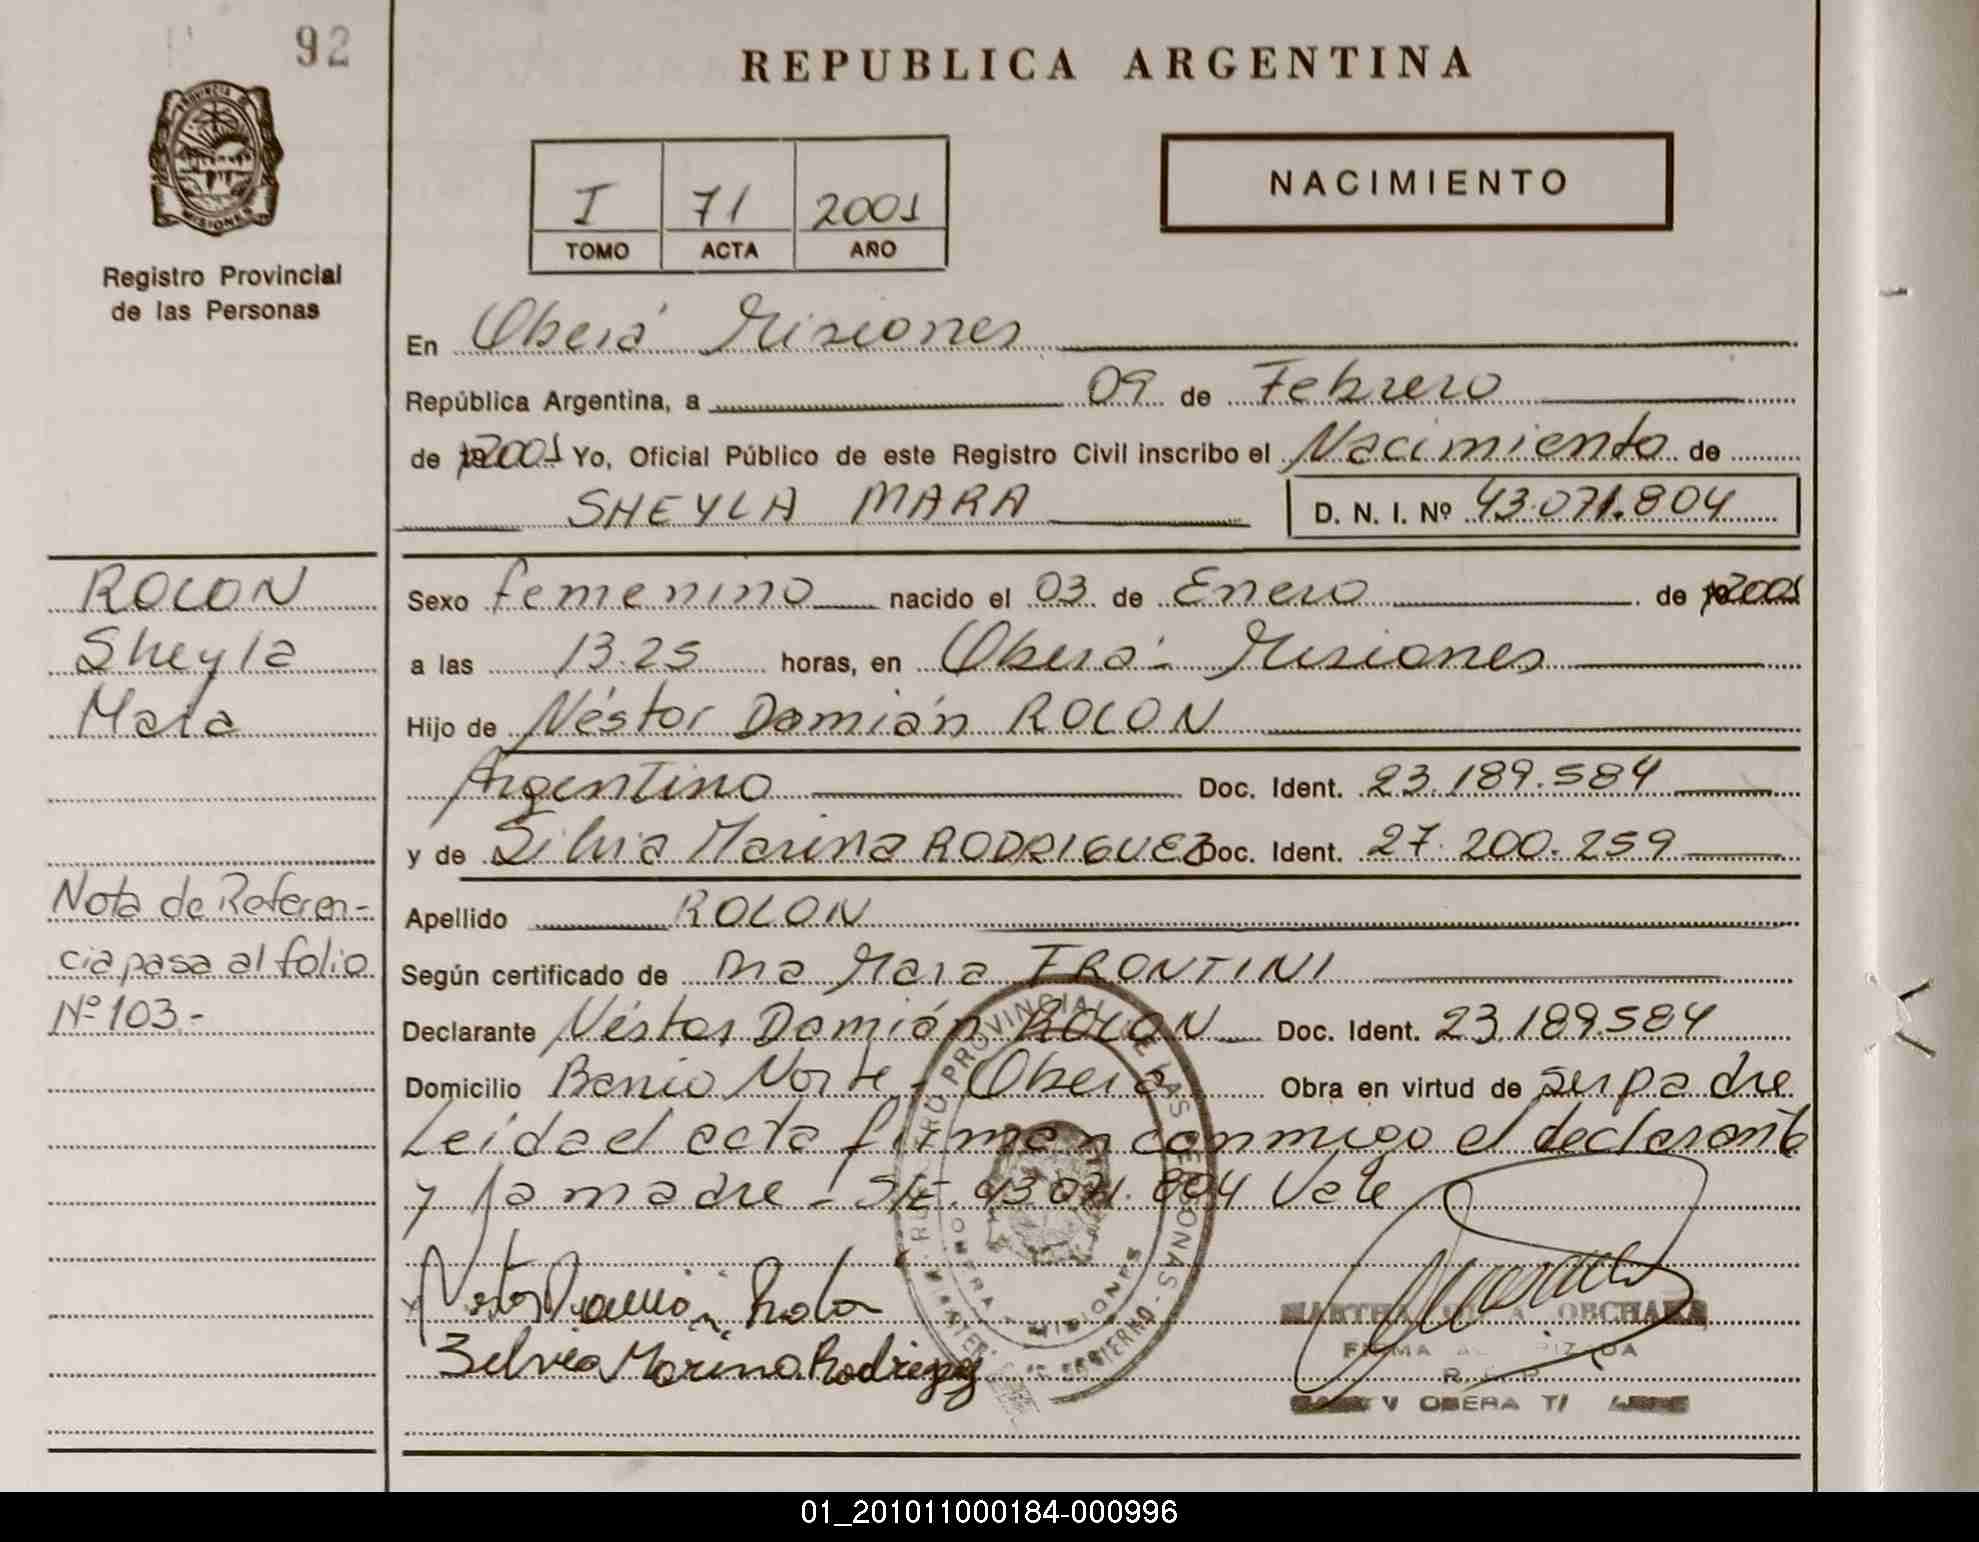 92
REPUBLICA ARGENTINA
PROVINCIA DE
MISIONES
Registro Provincial
de las Personas
I 71 2001
TOMO ACTA AÑO
NACIMIENTO
En Oberá Misiones
República Argentina, a 09 de Febrero
de 2001 Yo, Oficial Público de este Registro Civil inscribo el Nacimiento de
SHEYLA MARA D. N. I. Nº 43.071.804
ROLON
Sheyla
Mara
Sexo femenino nacido el 03 de Enero de 2001
a las 13.25 horas, en Oberá - Misiones
Hijo de Néstor Damián ROLON
Argentino Doc. Ident. 23.189.584
y de Silvia Marina RODRIGUEZ Doc. Ident. 27.200.259
Apellido ROLON
Nota de Referen-
cia pasa al folio
Nº 103.-
Según certificado de Dra Mara FRONTINI
Declarante Néstor Damián ROLON Doc. Ident. 23.189.584
Domicilio Barrio Norte - Oberá Obra en virtud de ser padre
Leída el acta firman conmigo el declarante
y la madre - S/E. 43.071.804 Vale
REGISTRO PROVINCIAL DE LAS PERSONAS
MISIONES
Silvia Marina Rodriguez
MARTHA
FIRMA
OBERA
01_201011000184-000996